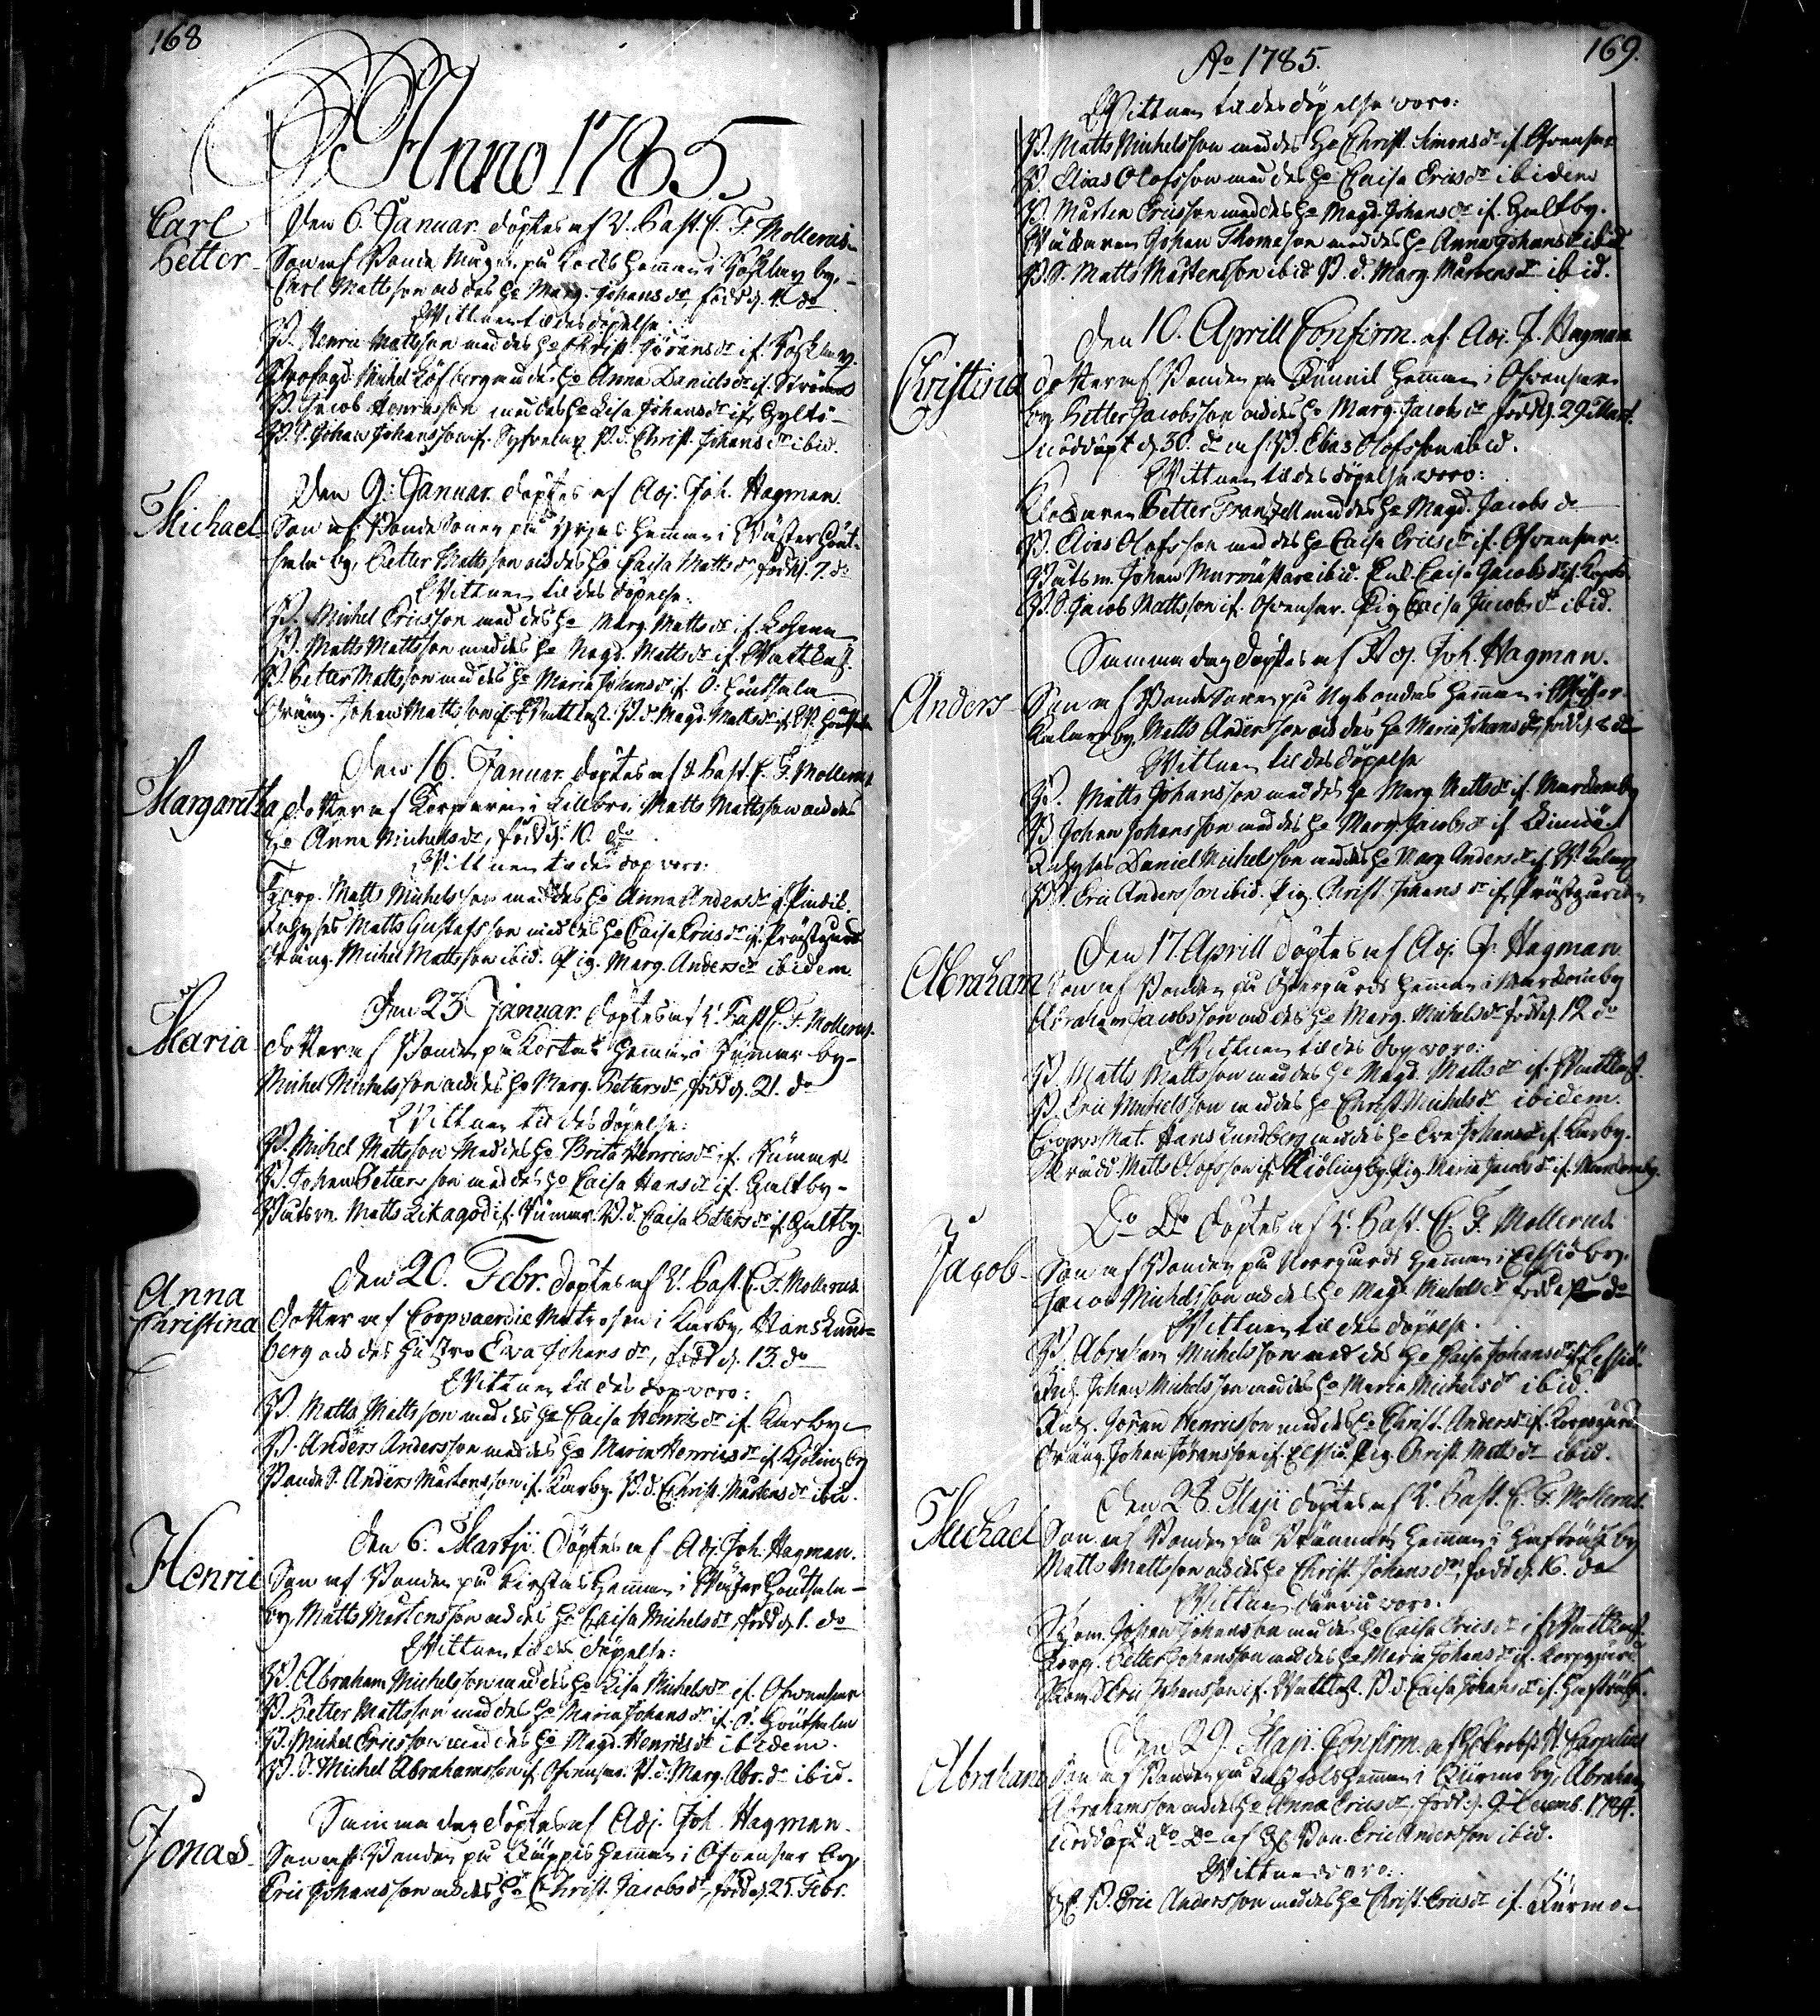 168
Anno 1785.
Carl Petter
Den 6. Januar. döptes af V. Past. C. F. Mollerus
Son af Bonde Mågen på hemman i by,
Carl Mattsson och des H:o Marg. Johans dr född d. 4. do
Wittnen til des döpelse:
B. Henric Mattsson med des H:o Christ. Jörens dr if.
Michel Löfberg med des H:o Anna Daniels dr if. Ström
B. Jacob Henricsson med des H:o Lisa Johans dr if. Gyltö
B. S. Johan Johansson if. B. d. Christ. Johans dr ibid.
Michael
Den 9. Januar. döptes af Adj. Joh. Hagman.
Son af Bonde Sonen på hemman i Wäster
by, Petter Mattsson och des H:o Caisa Matts dr, född d. 7. do
Wittnen til des döpelse:
B. Michel Ericsson med des H:o Marg. Matts dr if.
B. Matts Mattsson med des H:o Magd. Matts dr if. Wattkast.
B. Petter Mattsson med des H:o Maria Johans dr if. Ö.
Dräng. Johan Mattsson if. Wattkast. B. d. Magd. Matts dr if. W.
Margaretha
Den 16. Januar. döptes af V. Past. C. F. Mollerus
dotter af Torparen i Lillbro Matts Mattsson och des
H:o Anna Michels dr, född d. 10. do
Wittnen til des dop voro:
Torp. Matts Michelsson med des H:o Anna Anders dr if.
Matts Gustafsson med des H:o Caisa Erics dr if. Prästgård
Dräng. Michel Mattsson ibid. Pig. Marg. Anders dr ibidem.
Maria
Den 23. Januar. döptes af V. Past. C. F. Mollerus.
dotter af Bonden på hemman i Rumar by
Michel Michelsson och des H:o Marg. Petters dr, född d. 21. do
Wittnen til des döpelse:
B. Michel Mattsson med des H:o Brita Henrics dr if. Rumar.
B. Johan Pettersson med des H:o Caisa Hans dr if. Galtby
Båtsm. Matts Likagod if. Rumar. B. d. Caisa Petters dr if. Galtby.
Anna Christina
Den 20. Febr. döptes af V. Past. C. F. Mollerus.
dotter af Coopvaerdie Matrosen i Karby, Hans Lund-
berg och des Hustro Eva Johans dr, född d. 13. do
Wittnen til des dop voro:
B. Matts Mattsson med des H:o Caisa Henrics dr if. Karby
B. Anders Andersson med des H:o Maria Henrics dr if. Kjöling by
Bonde S. Anders Mårtensson if. Karby. B. d. Christ. Mårtens dr ibid.
Henric
Den 6. Martji. döptes af Adj. Joh. Hagman.
Son af Bonden på hemman i Wäster
by, Matts Mårtensson och des H:o Caisa Michels dr, född d. 1. do
Wittnen til des döpelse:
B. Abraham Michelsson med des H:o Lisa Michels dr if. Ofvensar
B. Petter Mattsson med des H:o Maria Johans dr if. Ö.
B. Michel Ericsson med des H:o Magd. Henrics dr ibidem.
B. S. Michel Abrahamsson if. Ofvensar. B. d. Marg. Abr. dr ibid.
Jonas
Samma dag döptes af Adj. Joh. Hagman.
Son af Bonden på hemman i Ofvensar by
Eric Johansson och des H:o Christ. Jacobs dr, född d. 25. Febr.
169.
Ao 1785.
Wittnen til des döpelse voro:
B. Matts Michelsson med des H:o Christ. Simons dr if. Ofvensar
B. Elias Olofsson med des H:o Caisa Erics dr ibidem
B. Mårten Ericsson med des H:o Magd. Johans dr if. Galtby.
Johan Thomasson med des H:o Anna Johans dr ibid.
B. S. Matts Mårtensson ibid. B. d. Marg. Mårtens dr ibid.
Christina
Den 10. Aprill Confirm. af Adj. J. Hagman
dotter af Bonden på hemman i Ofvensar
by Petter Jacobsson och des H:o Marg. Jacobs dr född d. 29. Mart.
nöddöpt d. 30. do af B. Elias Olofsson ibid.
Wittnen til des döpelse voro:
Klockaren Petter Franzell med des H:o Magd. Jacobs dr
B. Elias Olofsson med des H:o Caisa Erics dr if. Ofvensar.
Båtsm. Johan Murmästare ibid. Enk. Caisa Jacobs dr if.
B. S. Jacob Mattsson if. Ofvensar. Pig. Caisa Jacobs dr ibid.
Anders
Samma dag döptes af Adj. Joh. Hagman.
Son af Bonde Sonen på Nybondas hemman i Wäster
by, Matts Andersson och des H:o Maria Johans dr, född d. 8. do
Wittnen til des döpelse
B. Matts Johansson med des H:o Marg. Matts dr if. Murkomby
B. Johan Johansson med des H:o Marg. Jacobs dr if.
Daniel Michelsson med des H:o Marg. Anders dr if. W.
B. S. Eric Andersson ibid. Pig. Christ. Johans dr if. Prästgården
Abraham
Den 17. Aprill döptes af Adj. J. Hagman
Son af Bonden på Östergårds hemman i Murkomby
Abraham Jacobsson och des H:o Marg. Michels dr född d. 12. do
Wittnen til des dop voro:
B. Matts Mattsson med des H:o Magd. Matts dr if. Wattkast.
B. Eric Michelsson med des H:o Christ. Michels dr ibidem.
Coopv. Mat. Hans Lundberg med des H:o Eva Johans dr if. Karby.
Skrädd. Matts Olofsson if. Kiöling by. Pig. Maria Jacobs dr if. Murkomby.
Jacob
Do Do döptes af V. Past. C. F. Mollerus
Son af Bonden på Norrgårds hemman i Elfsiö by.
Jacob Michelsson och des H:o Magd. Michels dr född d. do
Wittnen til des döpelse.
B. Abraham Michelsson med des H:o Caisa Johans dr if. Elfsiö.
Johan Michelsson med des H:o Maria Michels dr ibid.
Jören Henricsson med des H:o Christ. Anders dr if. Korpogård
Dräng. Johan Jöransson if. Elfsiö. Pig. Christ. Matts dr ibid.
Michael
Den 28. Maji döptes af V. Past. C. F. Mollerus.
Son af Bonden på hemman i by
Matts Mattsson och des H:o Christ. Johans dr, född d. 16. do
Wittnen därvid voro.
Johan Johansson med des H:o Caisa Erics dr if. Wattkast.
Torp. Petter Johansson med des H:o Maria Johans dr if. Korpogård
Eric Johansson if. Wattkast. B. d. Caisa Johans dr if.
Abraham
Den 29. Maji. Confirm. af
Son af Bonden på hemman i by, Abraham
Abrahamsson och des H:o Anna Erics dr, född d. 9. Decemb. 1784.
nöddöpt do Do af Eric Andersson ibid.
Wittnen voro:
B. Eric Andersson med des H:o Christ. Erics dr if.